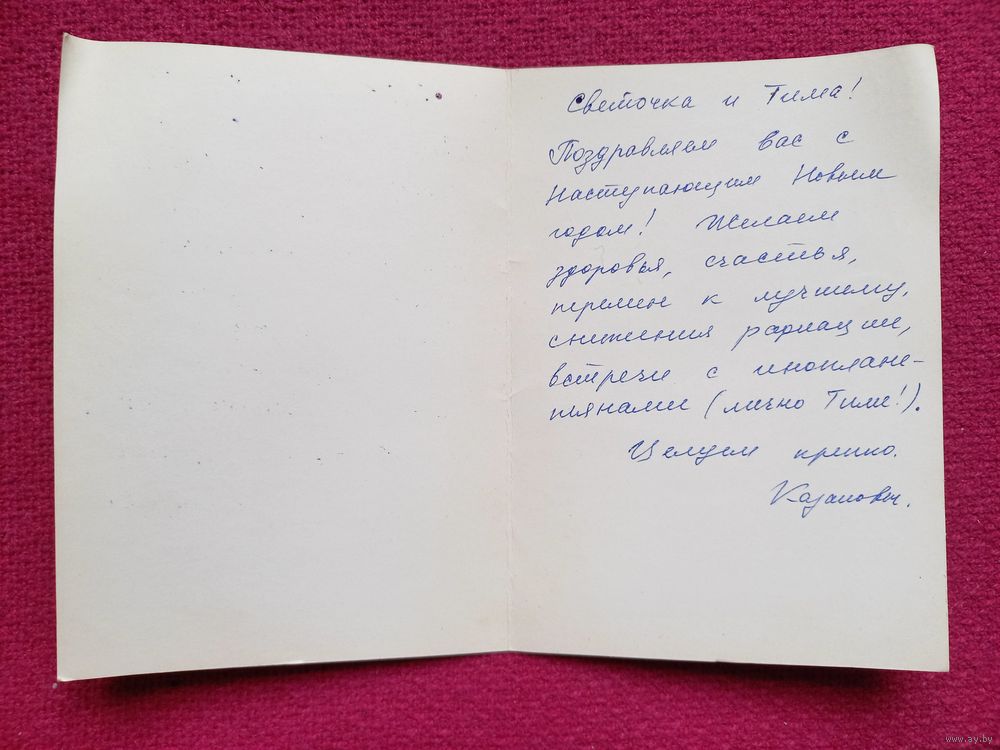 Светочка и Тима!
Поздравляем вас с
Наступающим Новым
годом! Желаем
здоровья, счастья,
перемен к лучшему,
снижения радиации,
встречи с иноплане-
тянами (лично Тиме!).
Целуем крепко.
www.ay.by